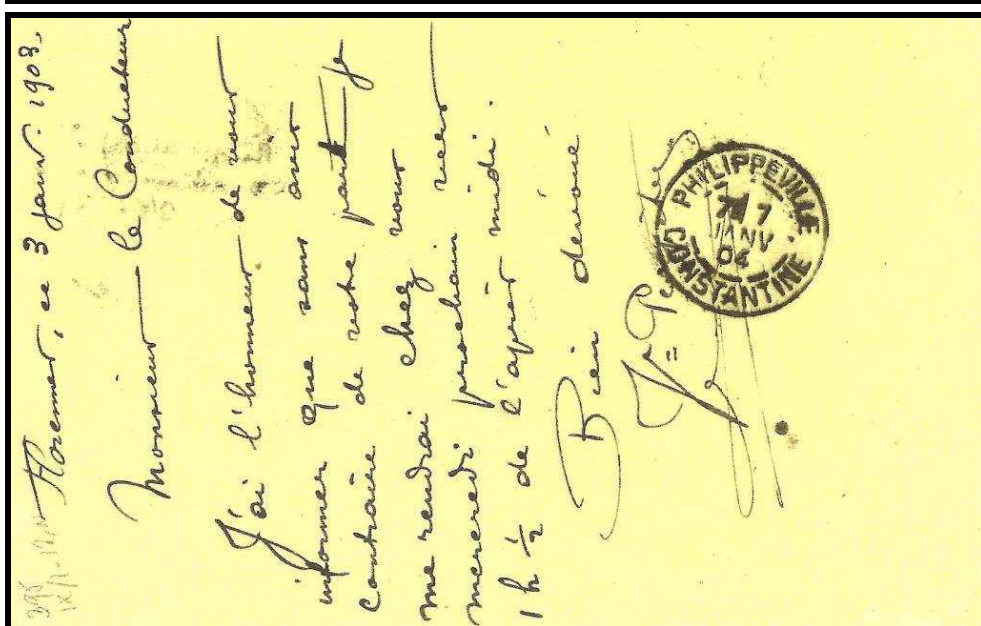 Florennes, ce 3 janv. 1903.
Monsieur le Conducteur
J'ai l'honneur de vous
informer que sans avis
contraire de votre part je
me rendrai chez vous
mercredi prochain vers
1 h ½ de l'après midi.
Bien dévoué
PHILIPPEVILLE
7 7
JANV
04
CONSTANTINE